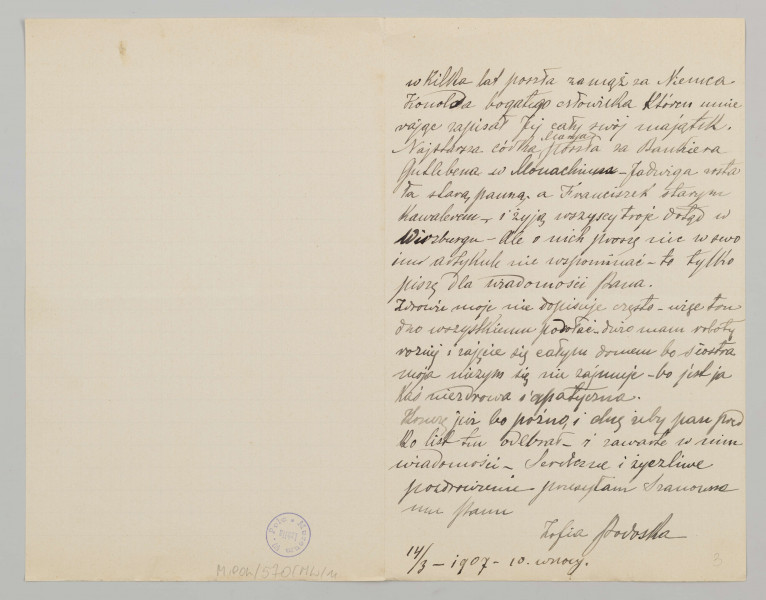 w kilka lat poszła zamąż za Niemca
bogatego człowieka któren umie
rając zapisał Jej cały swój majątek.
Najstarsza córka Marya poszła za Bankiera
w Monachium – Jadwiga zosta
ła starą panną, a Franciszek starym
Kawalerem – i żyją wszyscy troje dotąd w
Wirzburgu – Ale o nich proszę nic w swo
im artykule nie wspominać – to tylko
piszę dla wiadomości Pana.
Zdrowie moje nie dopisuje często – więc tru
dno wszystkiemu podołać – dużo mam roboty
różnej i zajęcie się całym domem bo siostra
moja niczym się nie zajmuje – bo jest ja
kaś niezdrowa i apatyczna.
Kończę już bo późno, i chcę żeby pan pręd
ko list ten odebrał – i zawarte w nim
wiadomości – Serdeczne i życzliwe
pozdrowienie przesyłam Szanowne
mu Panu
Zofia Podoska
14/3 – 1907 – 10. w nocy.
3